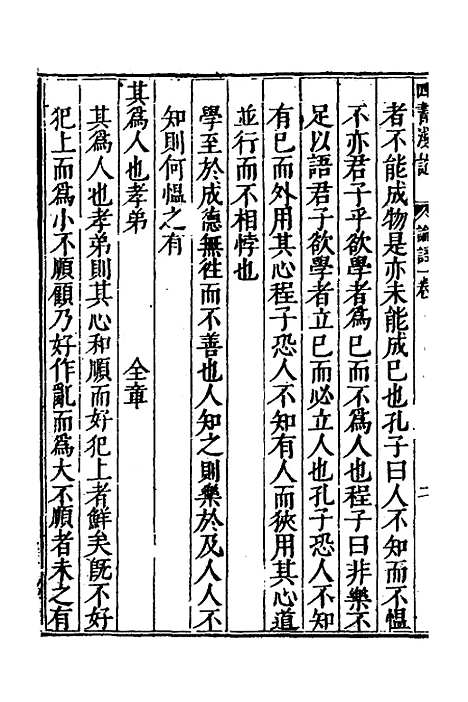 四書淺說　論語一卷　二
者不能成物是亦未能成已也孔子曰人不知而不慍
不亦君子乎欲學者為已而不為人也程子曰非樂不
足以語君子欲學者立已而必立人也孔子恐人不知
有已而外用其心程子恐人不知有人而狹用其心道
並行而不相悖也
學至於成德無徃而不善也人知之則樂於及人人不
知則何慍之有
其為人也孝弟　全章
其為人也孝弟則其心和順而好犯上者鮮矣旣不好
犯上而為小不順顧乃好作亂而為大不順者未之有